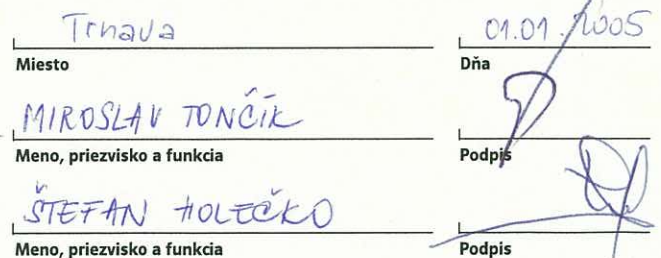 Trnava 01.01.2005
Miesto Dňa
MIROSLAV TONČÍK
Meno, priezvisko a funkcia Podpis
ŠTEFAN HOLEČKO
Meno, priezvisko a funkcia Podpis